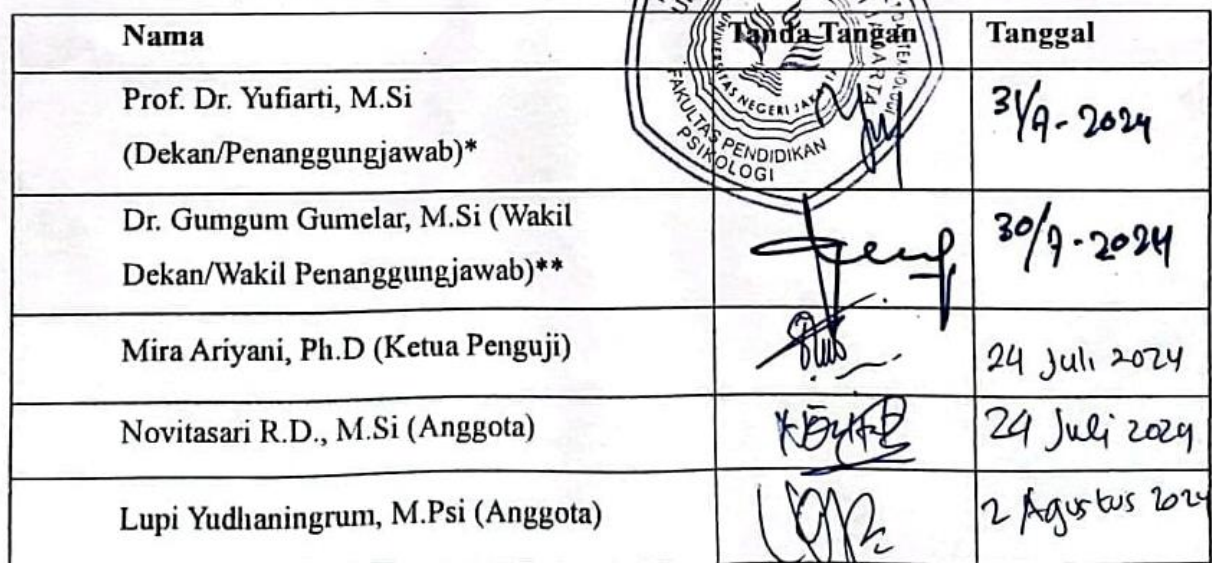 Nama Tanda Tangan Tanggal
Prof. Dr. Yufiarti, M.Si
(Dekan/Penanggungjawab)*
31/7-2024
UNIVERSITAS NEGERI JAKARTA
FAKULTAS PENDIDIKAN
PSIKOLOGI
Dr. Gumgum Gumelar, M.Si (Wakil
Dekan/Wakil Penanggungjawab)**
30/7-2024
Mira Ariyani, Ph.D (Ketua Penguji) 24 Juli 2024
Novitasari R.D., M.Si (Anggota) 24 Juli 2024
Lupi Yudhaningrum, M.Psi (Anggota) 2 Agustus 2024